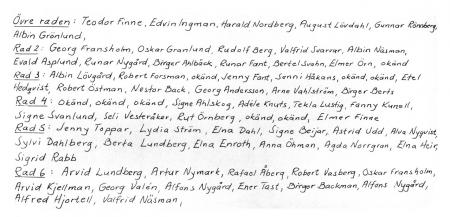 Övre raden: Teodor Finne, Edvin Ingman, Harald Nordberg, August Lövdahl, Gunnar Rönnberg,
Albin Grönlund,
Rad 2: Georg Fransholm, Oskar Granlund, Rudolf Berg, Valfrid Svarvar, Albin Näsman,
Evald Asplund, Runar Nygård, Birger Ahlbäck, Runar Fant, Bertel Svahn, Elmer Örn, okänd
Rad 3: Albin Lövgård, Robert Forsman, okänd, Jenny Fant, Senni Håkans, okänd, okänd, Etel
Hedqvist, Robert Östman, Nestor Back, Georg Andersson, Arne Vahlström, Birger Berts
Rad 4: Okänd, okänd, okänd, Signe Ahlskog, Adéle Knuts, Tekla Lustig, Fanny Kunell,
Signe Svanlund, Seli Vesteråker, Rut Örnberg, okänd, okänd, Elmer Finne
Rad 5: Jenny Toppar, Lydia Ström, Elna Dahl, Signe Beijar, Astrid Udd, Alva Nyqvist,
Sylvi Dahlberg, Berta Lundberg, Elna Enroth, Anna Öhman, Agda Norrgran, Elna Heir,
Sigrid Rabb
Rad 6: Arvid Lundberg, Artur Nymark, Rafael Åberg, Robert Vasberg, Oskar Fransholm,
Arvid Kjellman, Georg Valén, Alfons Nygård, Ener Tast, Birger Backman, Alfons Nygård,
Alfred Hjortell, Valfrid Näsman,